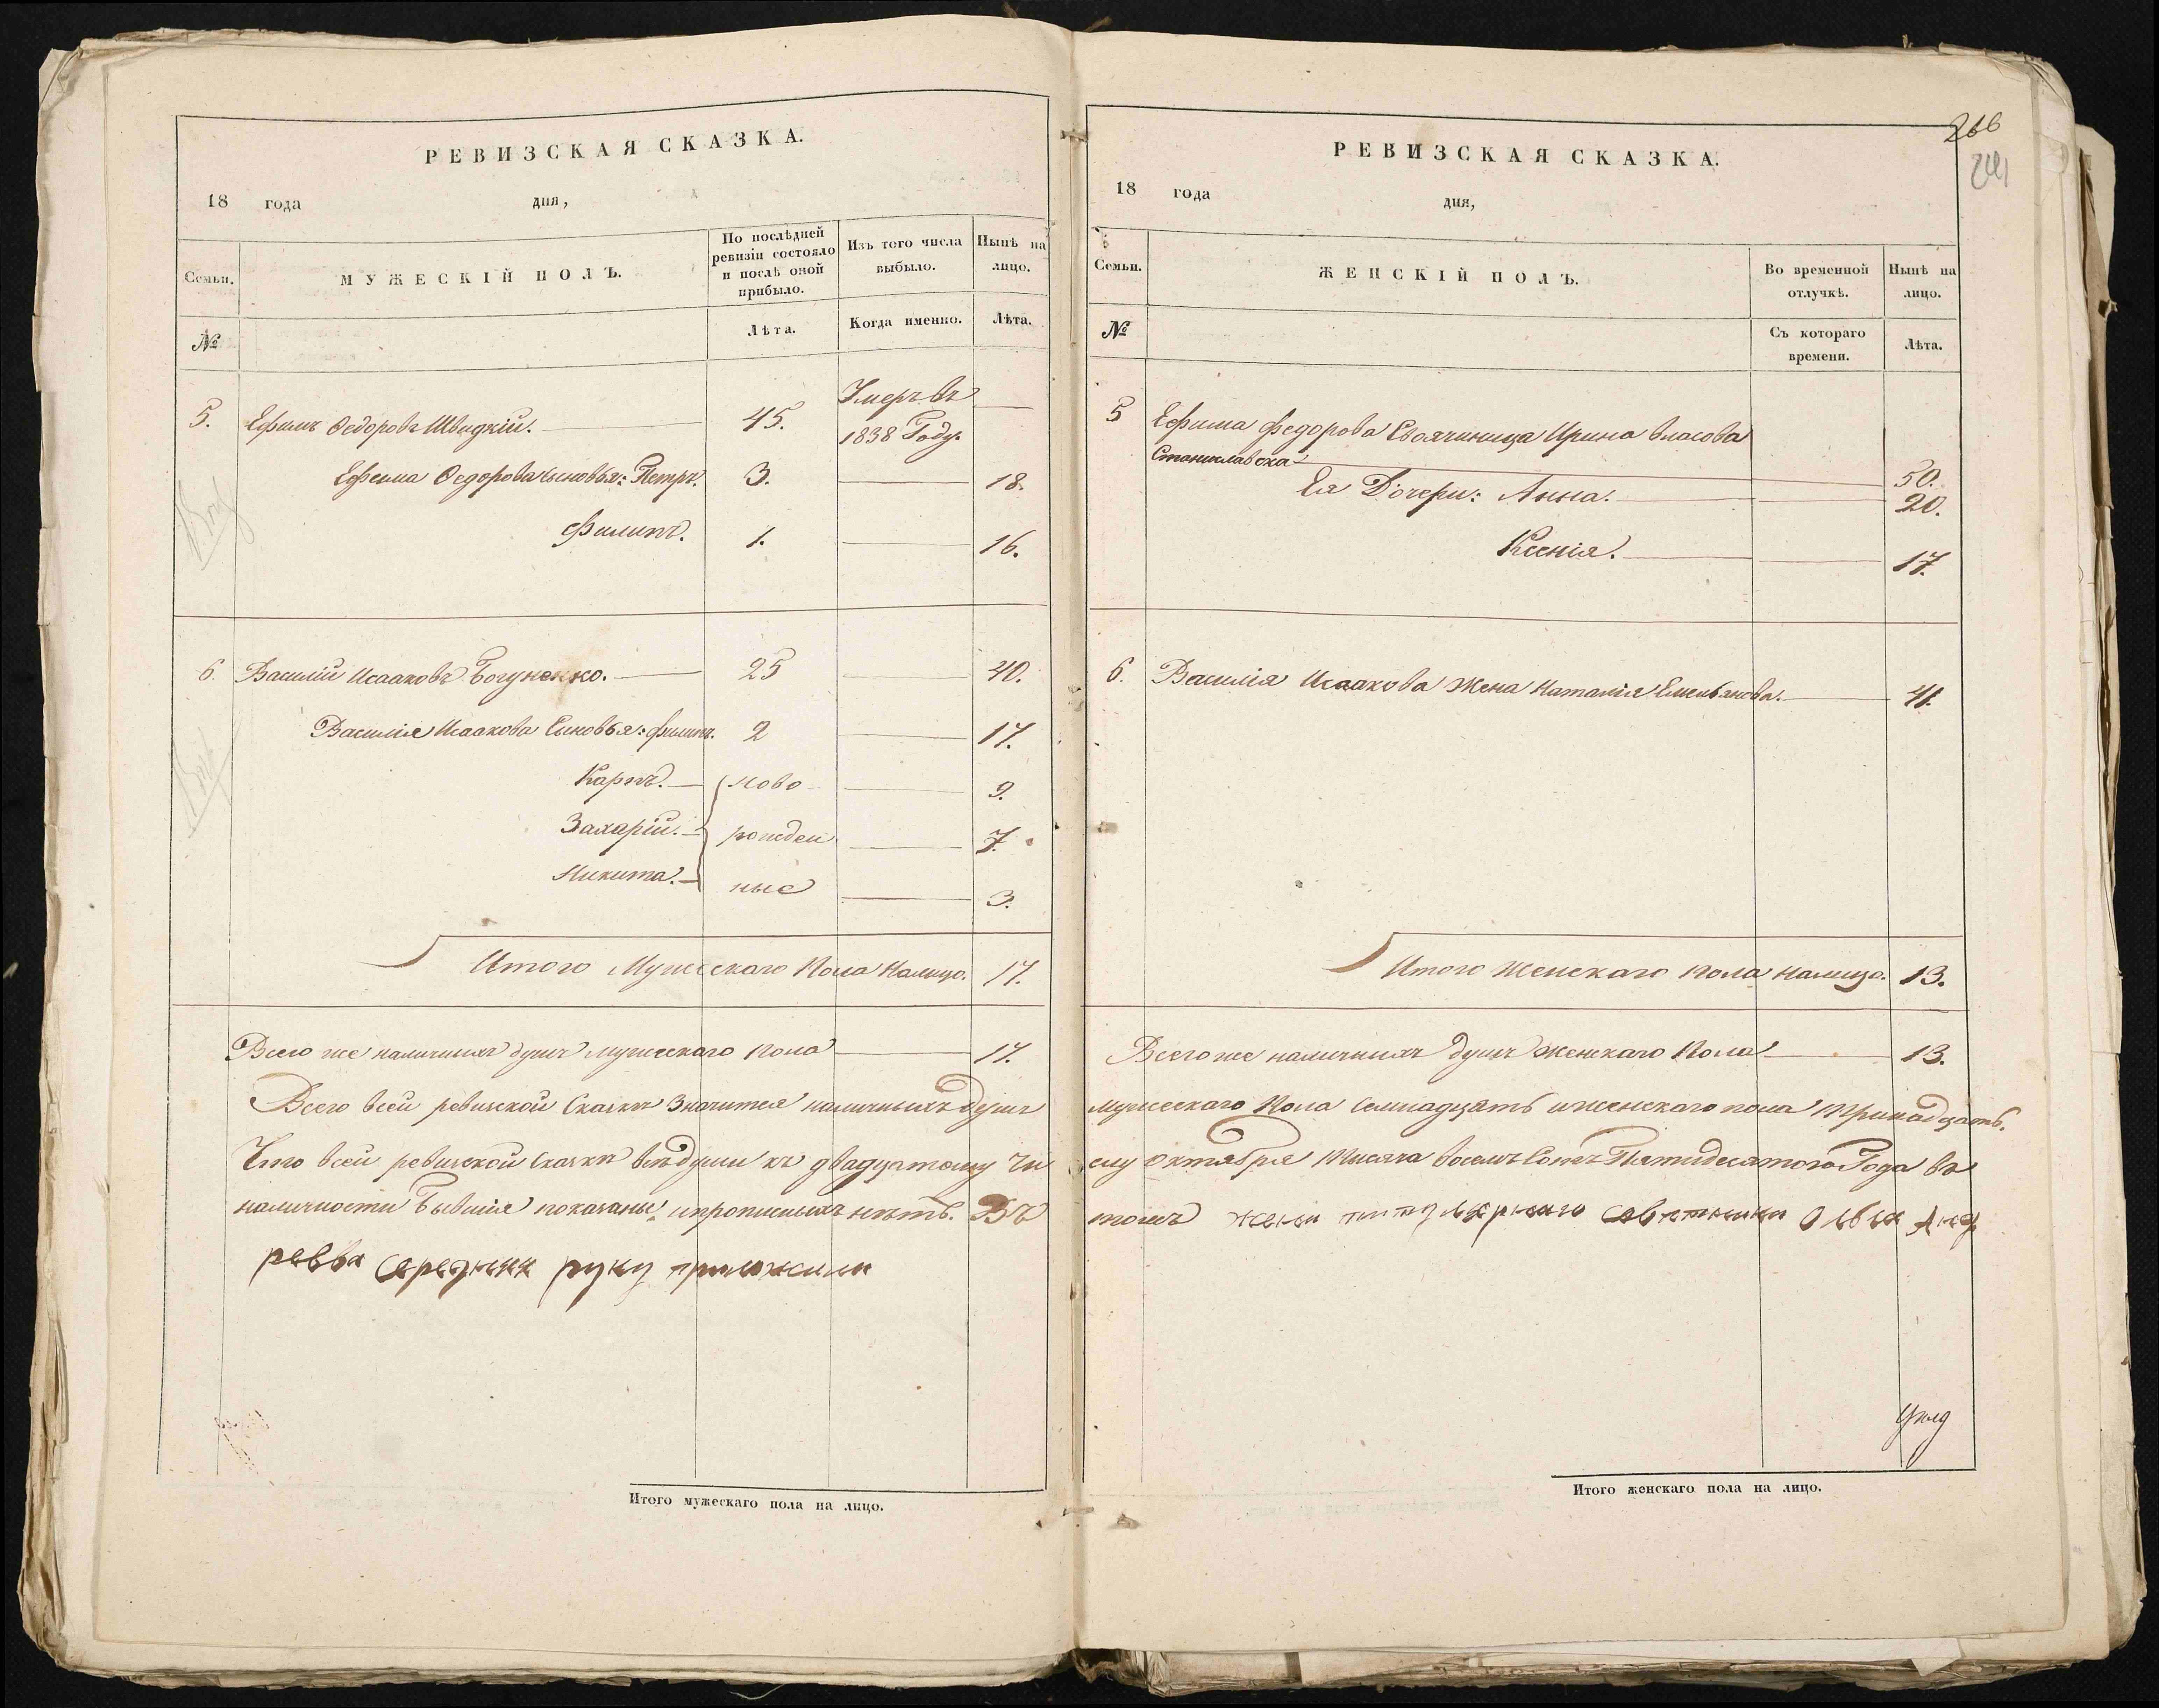 РЕВИЗСКАЯ СКАЗКА.
18 года дня,
Семьи. МУЖЕСКІЙ ПОЛЪ. По послѣдней ревизіи состояло и послѣ оной прибыло. Изъ того числа выбыло. Нынѣ на лицо.
№ Лѣта. Когда именно. Лѣта.
Умеръ въ
5. Ефимъ Ѳедоровъ Швидкій. 45. 1838 Году.
Ефима Ѳедорова сыновья: Петръ. 3. 18.
Филипъ. 1. 16.
6. Василій Исааковъ Богуненко. 25 40.
Василія Исаакова Сыновья: Филипъ. 2 17.
Карпъ. ново 9.
Захарій. рожден 7.
Никита. ные 3.
Итого Мужескаго Пола Налицо. 17.
Всего же наличныхъ душъ мужескаго пола 17.
Всего всей ревизской Сказкѣ Значится наличныхъ Душъ
Что всей ревизской Сказкѣ всѣ души къ двадцатому Чи
наличности Бывшія показаны, и прописныхъ нѣтъ. Въ
ревва Середняя руку приложила
Итого мужескаго пола на лицо.
266
РЕВИЗСКАЯ СКАЗКА.
18 года дня,
Семьи. ЖЕНСКІЙ ПОЛЪ. Во временной отлучкѣ. Нынѣ на лицо.
№ Съ котораго времени. Лѣта.
5 Ефима Федорова Своячиница Ирина Власова
Станиславска 50.
Ея Дочери: Анна. 20.
Ксенія. 17.
6. Василія Исаакова Жена Наталія Емельянова. 41.
Итого Женскаго пола налицо. 13.
Всего же наличныхъ душъ Женскаго Пола 13.
мужескаго Пола Семнадцать и женскаго пола Тринадцать.
слу Октября Тысяча восемь Сотъ Пятидесятого Года въ
томъ жена титулярнаго советника Олья Анд
Итого женскаго пола на лицо.